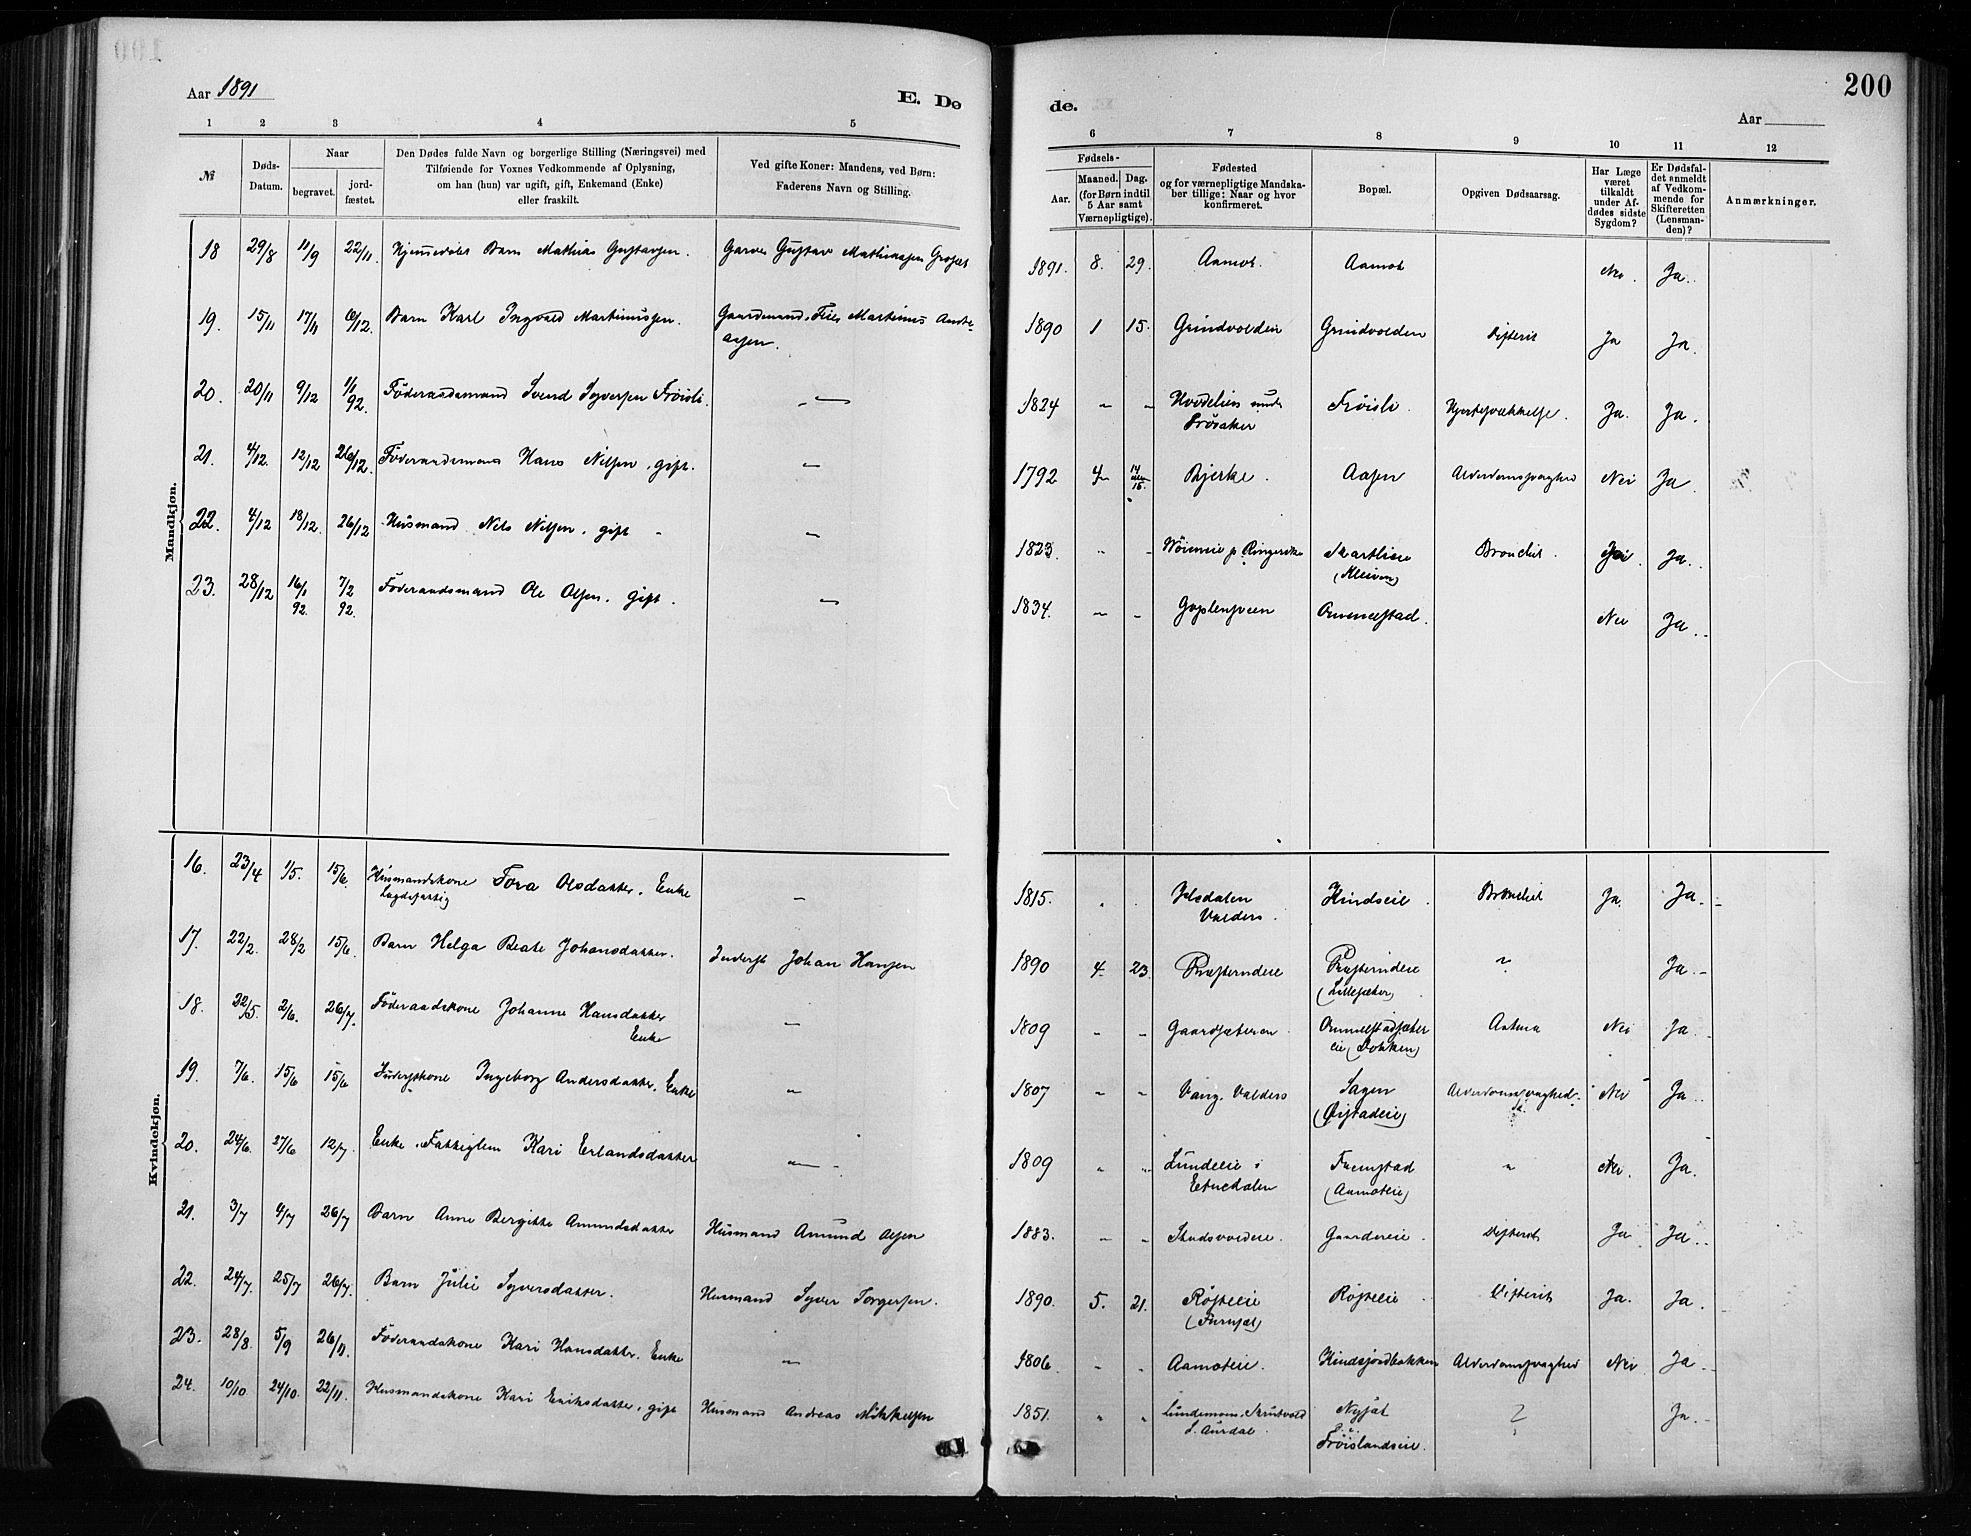 Aar 1891
E. Dø
1 2 3 4 5
№
Døds-
Datum.
Naar
begravet.
jord-
fæstet.
Den Dødes fulde Navn og borgerlige Stilling (Næringsvei) med
Tilføiende for Voxnes Vedkommende af Oplysning,
om han (hun) var ugift, gift, Enkemand (Enke)
eller fraskilt.
Ved gifte Koner: Mandens, ved Børn:
Faderens Navn og Stilling.
Mandkjøn.
18 29/8 11/9 22/11. Hjemmedøbt Barn Mathias Gustavsen. Garver Gustav Mathiassen
19. 15/11 17/11 6/12. Barn Karl Ingvald Martinussen. Gaardmand Martinus Andre-
assen.
20. 20/11 9/12 1/1
92. Föderaadsmand Svend Syversen Fröisli. —
21. 4/12. 12/12 26/12. Föderaadsmand Hans Nilsen, gift. —
22. 4/12 18/12. 26/12 Husmand Nels Nilsen, gift —
23. 28/12 16/1
92. 7/2
92. Föderaadsmand Ole Olsen, gift. —
Kvindekjøn.
16. 23/4 1/5. 15/6. Husmandskone Tora Olsdatter, Enke
Lægdsfattig —
17. 22/2. 28/2 15/6. Barn Helga Beate Johansdatter. Inderst Johan Hansen
18. 22/5. 2/6. 26/7. Föderaadskone Johanne Hansdatter
Enke —
19. 7/6. 15/6 15/6 Inderstkone Ingeborg Andersdatter, Enke "
20. 24/6. 27/6 12/7. Enke, Fattiglem Kari Erlandsdatter —
21. 3/7 4/7 26/7 Barn Anne Bergitte Amundsdatter Husmand Amund Olsen
22. 24/7. 25/7 26/7. Barn Julie Syversdatter. Husmand Syver Torgersen.
23. 28/8. 5/9 26/11. Föderaadskone Kari Hansdatter. Enke —
24. 10/10. 24/10. 22/11. Husmandskone Kari Eriksdatter, gift Husmand Andreas Mikkelsen
de.
200
Aar
6 7 8 9 10 11 12
Fødsels-
Aar.
Maaned. Dag.
(for Børn indtil
5 Aar samt
Værnepligtige).
Fødested
og for værnepligtige Mandska-
ber tillige: Naar og hvor
konfirmeret.
Bopæl.
Opgiven Dødsaarsag.
Har Læge
været
tilkaldt
under Af-
dødes sidste
Sygdom?
Er Dødsfal-
det anmeldt
af Vedkom-
mende for
Skifteretten
(Lensman-
den)?
Anmærkninger.
1891. 8. 29. Aamot. Aamot Nei. Ja.
1890 1 15. Grindvolden Grindvolden Difterit Ja Ja.
1824 " " Hovdelien under
Fröisaker Fröisli. Hjertesvækkelse. Ja. Ja.
1792 4 14
eller
15. Bjerke. Aasen Alderdomssvaghed Nei Ja.
1823. " " Wöieneie p. Ringerike Skartlien
(Kleiven) Bronchit. Ja.
1834. " " Goplensveen Ommelstad. Nei Ja.
1815. " " Valders. Hindseie. Bronchit Ja. Ja.
1890 4. 23. Præsterudeie Præsterudeie
(Lillesæter) ? Ja.
1809 " " Gaardsæteren Ommelstadsæter
eie (Dokken) Astma Nei Ja.
1807 " " Vang. Valders Sagen
(Øistadeie) Alderdomssvaghed. Nei Ja.
1809 " " Lundeeie i
Etnedalen Fremstad
(Aamoteie) " Nei. Ja.
1883. " " Stadsvoldeie. Gaardereie. Difterit Ja Ja.
1890. 5. 21. Röste­eie
(Furusæt) Rösteeie Difterit Ja. Ja.
1806. " " Aamoteie. Hindsjordbakken Alderdomssvaghed Nei Ja
1851. " " Lundemoen, Skrutvold
S. Aurdal. Nysæt
Fröislandseie. ? Ja.